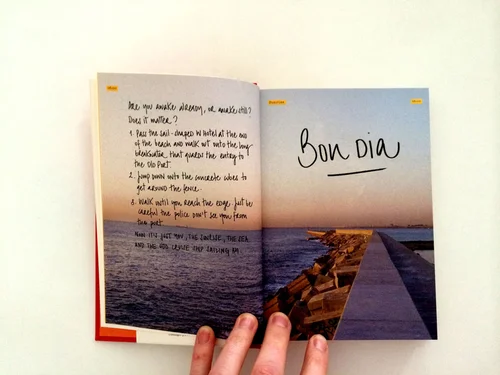 Are you awake already, or awake still?
Does it matter?
1. Pass the sail-shaped W Hotel at the end
of the beach and walk out onto the long
breakwater that guards the entry to
the Old Port.
2. Jump down onto the concrete cubes to
get around the fence.
3. Walk until you reach the edge. Just be
careful the police don't see you from
the port.
Now it's just you, the sunrise, the sea
and the odd cruise ship sailing by.
Bon Dia